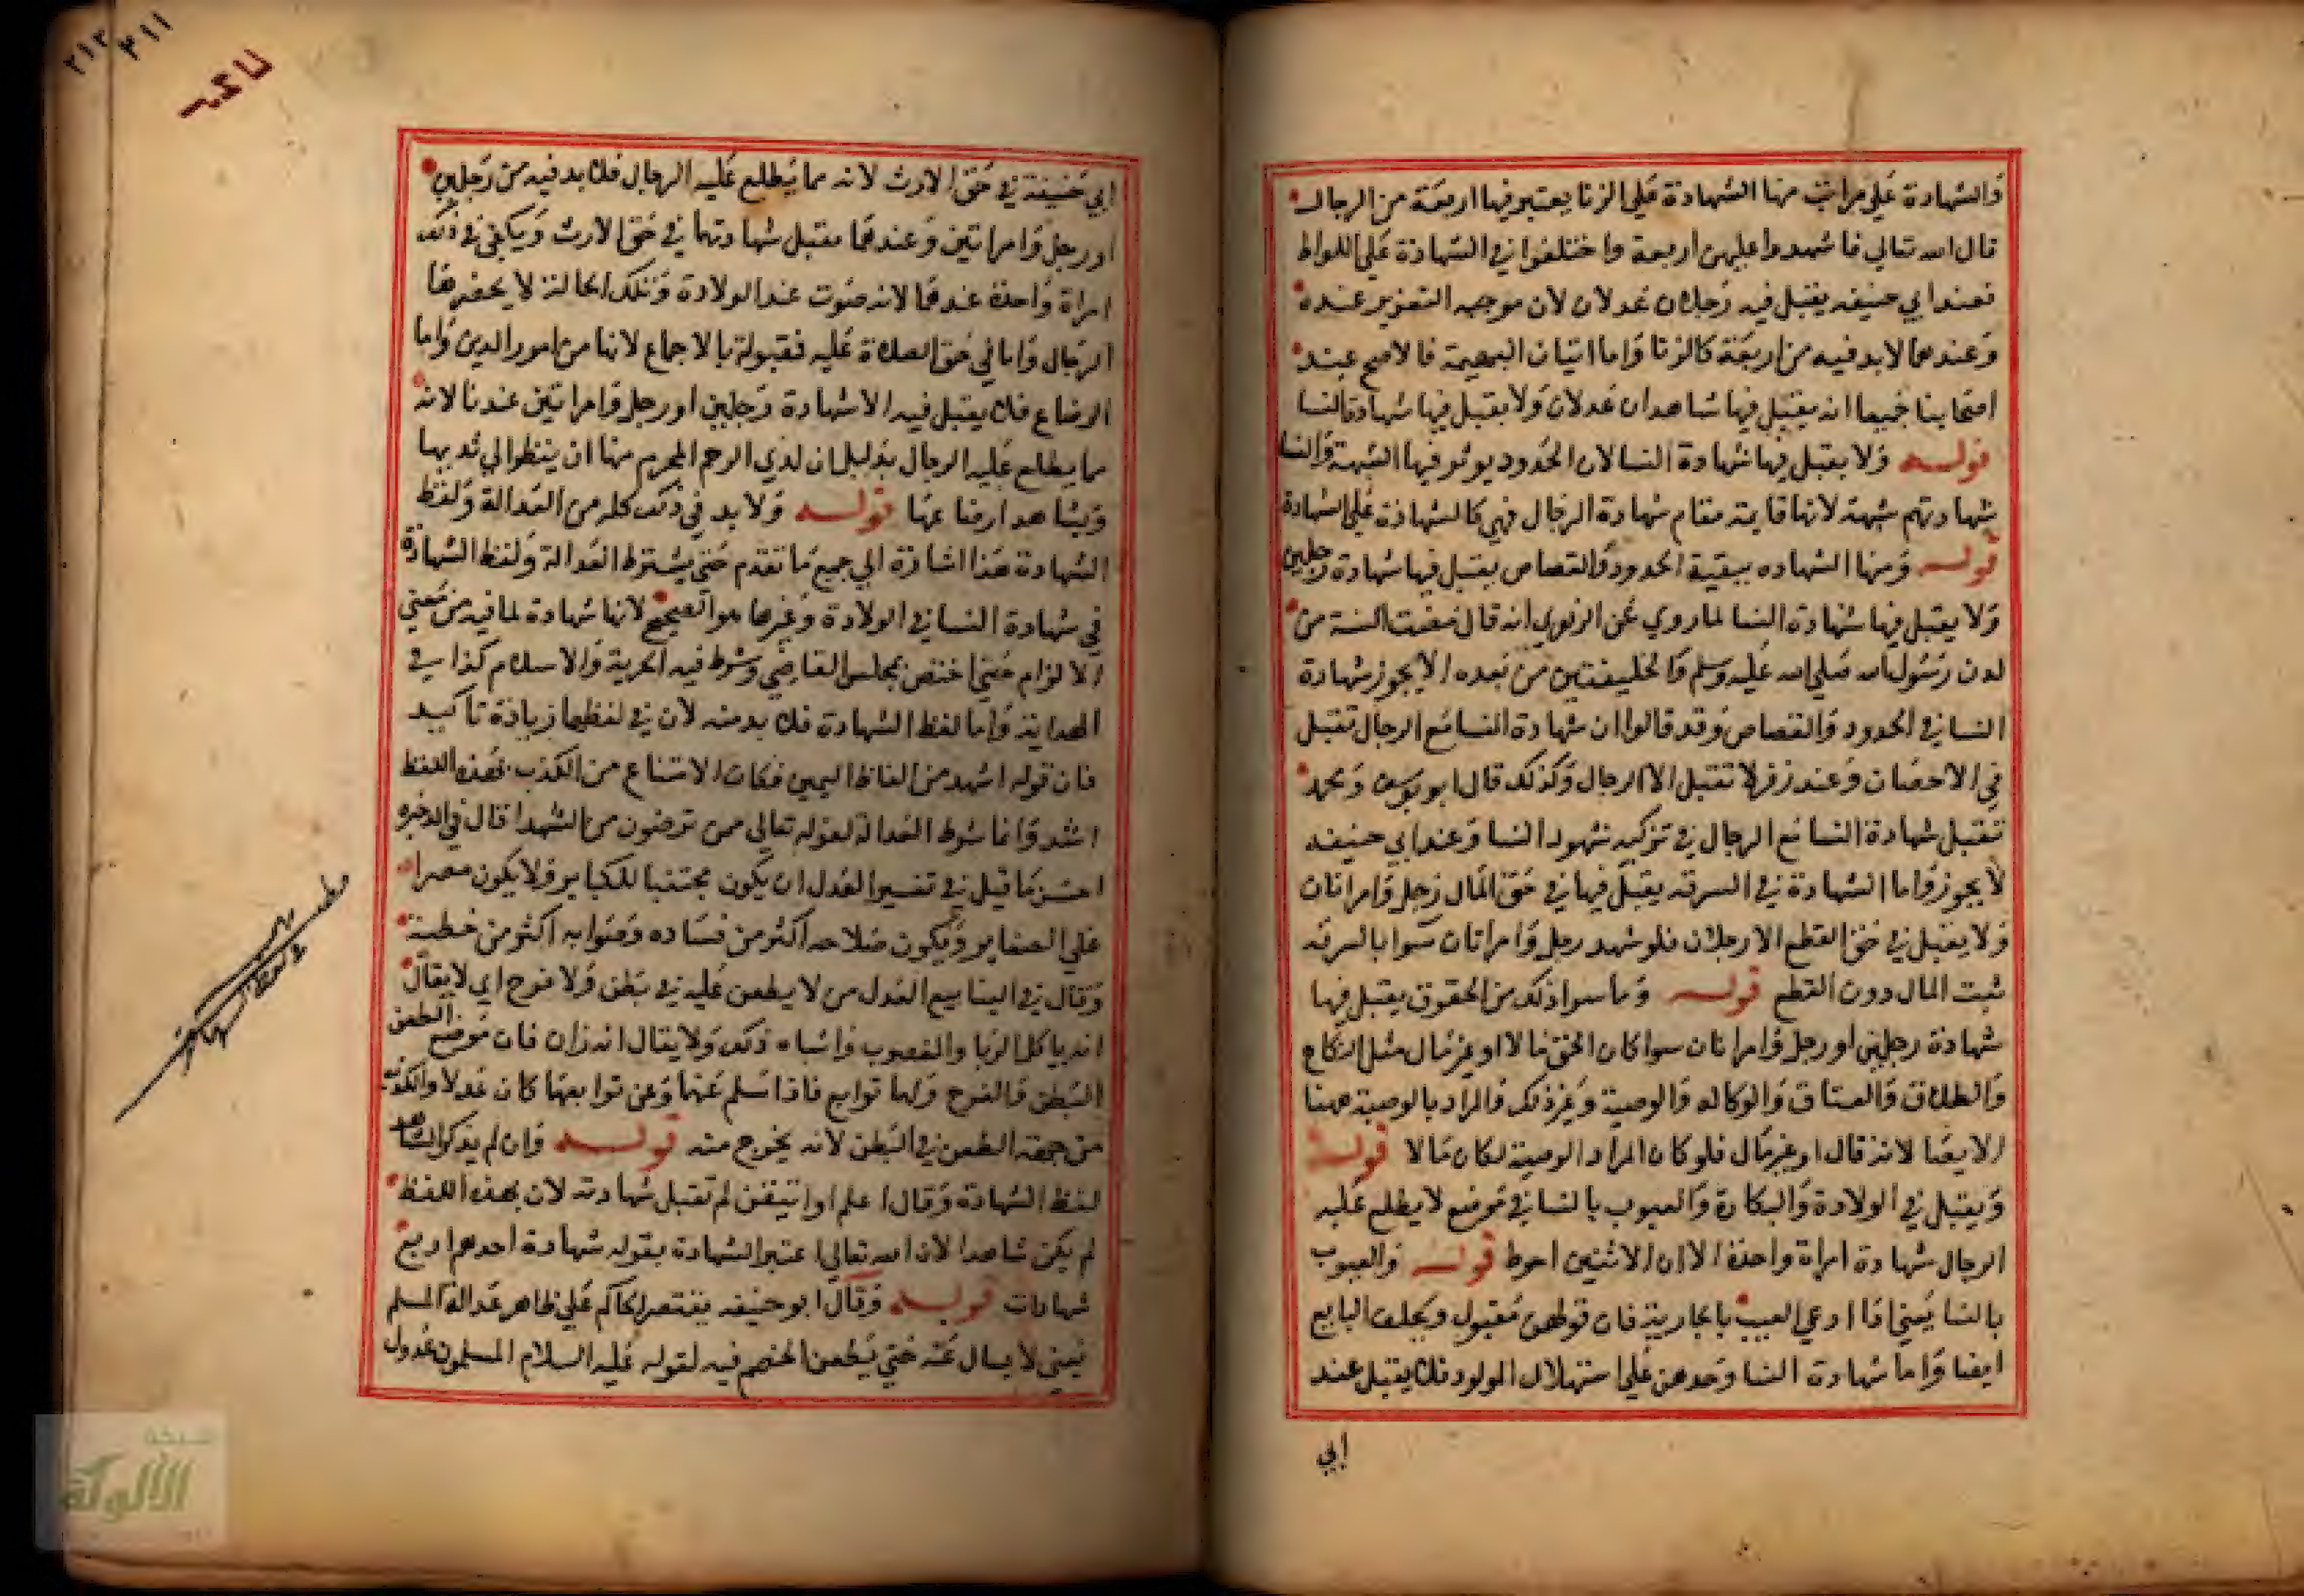 والشهادة على مراتب منها الشهادة على الزنا يعتبر فيها اربعة من الرجال
قال الله تعالى فاشهدوا عليهن اربعة واختلفوا في الشهادة على اللواط
فعند ابي حنيفه يقبل فيه رجلان عدلان لان موجبه التعزير عنده
وعندهما لا بد فيه من اربعة كالزنا واما اتيان البهيمة فالاصح عند
اصحابنا جميعا انه يقبل فيها شاهدان عدلان ولا يقبل فيها شهادة النسا
قوله ولا يقبل فيها شهادة النسا لان الحدود يوثر فيها الشبهة والنسا
شهادتهم شبهة لانها قايمة مقام شهادة الرجال فهي كالشهادة على الشهادة
قوله ومنها الشهاده ببقية الحدود والقصاص يقبل فيها شهادة رجلين
ولا يقبل فيها شهادة النسا لما روي عن الزهري انه قال مضت السنة من
لدن رسول الله صلى الله عليه وسلم والخليفتين من بعده الا يجوز شهادة
النسا في الحدود والقصاص وقد قالوا ان شهادة النسا مع الرجال تقبل
في الاحصان وعند زفر لا تقبل الا الرجال وكذلك قال ابو يوسف ومحمد
تقبل شهادة النسا مع الرجال في تزكية شهود النسا وعند ابي حنيفه
لا يجوز واما الشهادة في السرقه يقبل فيها في حق المال رجل وامراتان
ولا يقبل في حق القطع الا رجلان فلو شهد رجل وامراتان سوا بالسرقه
ثبت المال دون القطع قوله وما سوا ذلك من الحقوق يقبل فيها
شهادة رجلين او رجل وامراتان سوا كان الحق مالا او غير مال مثل النكاح
والطلاق والعتاق والوكاله والوصية وغير ذلك فالمراد بالوصية ههنا
الايصا لانه قال او غير مال فلو كان المراد الوصية لكان مالا قوله
ويقبل في الولادة والبكارة والعيوب بالنسا في موضع لا يطلع عليه
الرجال شهادة امراة واحدة الا ان الاثنين احوط قوله والعيوب
بالنسا يعني اذا ادعى العيب بالجارية فان قولهن مقبول ويحلف البايع
ايضا واما شهادة النسا وحدهن على استهلال المولود فلا يقبل عند
ابي
٢١٢ ٢١١
ابي حنيفة في حق الارث لانه مما يطلع عليه الرجال فلا بد فيه من رجلين
او رجل وامراتين وعندهما مقبل شهادتهما في حق الارث ويكفي في ذلك
امراة واحدة عندهما لانه صوت عند الولادة وتلك الحالة لا يحضرها
الرجال واما في حق الصلاة عليه فمقبولة بالاجماع لانها من امور الدين واما
الرضاع فلا يقبل فيه الا شهادة رجلين او رجل وامراتين عندنا لانه
مما يطلع عليه الرجال بدليل ان لذي الرحم المحرم منها ان ينظر الي ثديها
ويشاهد ارضاعها قوله ولا بد في ذلك كله من العدالة ولفظ
الشهادة هذا اشارة الى جميع ما تقدم حتى يشترط العدالة ولفظ الشهادة
في شهادة النسا في الولادة وغيرها هو الصحيح لانها شهادة لما فيه من معنى
الالزام حتى اختص بمجلس القاضي وشرط فيه الحرية والاسلام كذا في
الهداية واما لفظ الشهادة فلا بد منه لان في لفظها زيادة تاكيد
فان قوله اشهد من الفاظ اليمين فكان الامتناع من الكذب بهذه اللفظ
اشد وانما شرط العدالة لقوله تعالى ممن ترضون من الشهدا قال في الذخيره
احسن ما قيل في تفسير العدل ان يكون مجتنبا للكباير ولا يكون مصرا
على الصغاير ويكون صلاحه اكثر من فساده وصوابه اكثر من خطئه
وقال في الينابيع العدل من لا يطعن عليه في بطن ولا فرج اي لا يقال
انه ياكل الربا والغصوب واشباه ذلك ولا يقال انه زان فان موضع الطعن
البطن والفرج ولها توابع فاذا سلم عنها وعن توابعها كان عدلا والكذب
من جهة الطعن في البطن لانه يخرج منه قوله وان لم يذكر الشاهد
لفظ الشهادة وقال اعلم او اتيقن لم تقبل شهادته لان بهذه اللفظ
لم يكن شاهدا لان الله تعالى اعتبر الشهادة بقوله شهادة احدهم اربع
شهادات قوله وقال ابو حنيفه يقتصر الحاكم على ظاهر عدالة المسلم
يعني لا يسال عنه حتى يطعن الخصم فيه لقوله عليه السلام المسلمون عدول
شبكة
الألوكة